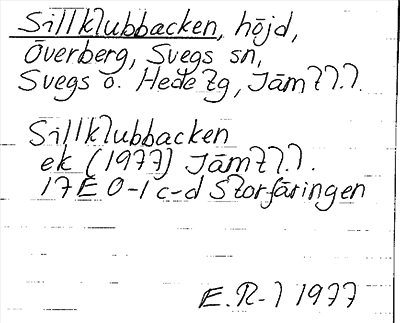 Sillklubbacken, höjd,
Överberg, Svegs sn,
Svegs o. Hede tg, Jämtl.
Sillklubbacken
ek (1977) Jämtl.
17E 0-1 c-d Storfäringen
E.R-l 1977